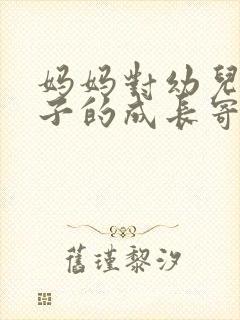 妈妈對幼兒
子的成长寄
舊瑾黎汐